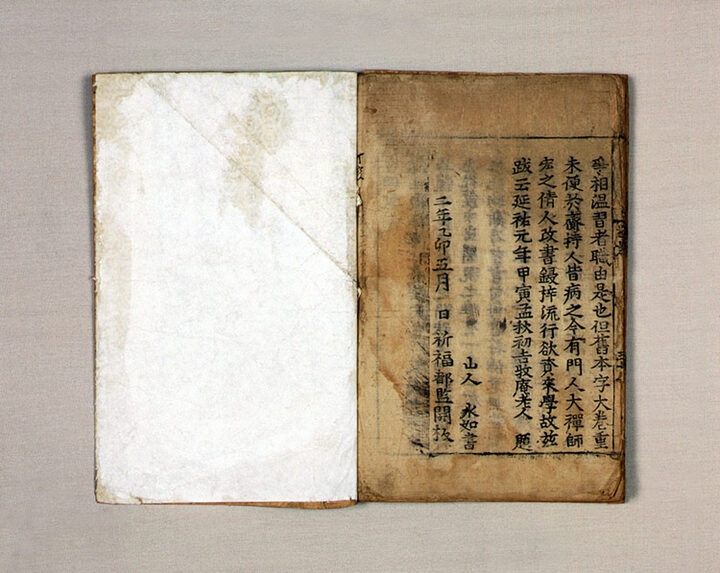 爭相温習者職由是也但舊本字大卷重
未便於齎持人皆病之今有門人大禪師
宏之倩人改書鋟梓流行欲資來學故玆
跋云延祐元年甲寅孟秋初吉牧庵老人 題
山人 永如書
二年己卯五月 日祈福都監開板